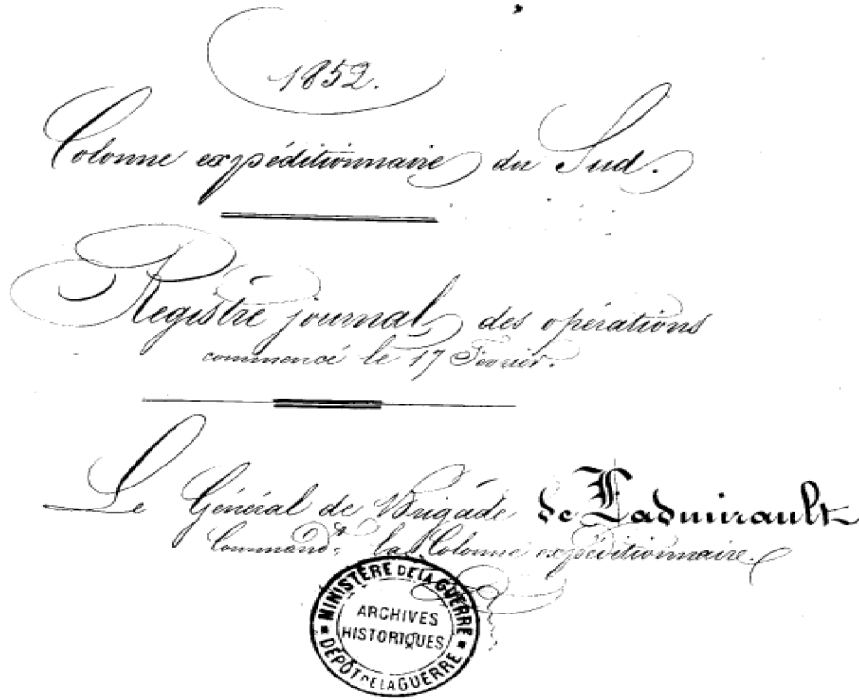 1852.
Colonne expéditionnaire du Sud.
Registre journal des opérations
commencé le 17 Février.
Le Général de Brigade de Ladmirault
Command.t la Colonne expéditionnaire.
MINISTÈRE DE LA GUERRE
ARCHIVES
HISTORIQUES
DÉPÔT DE LA GUERRE